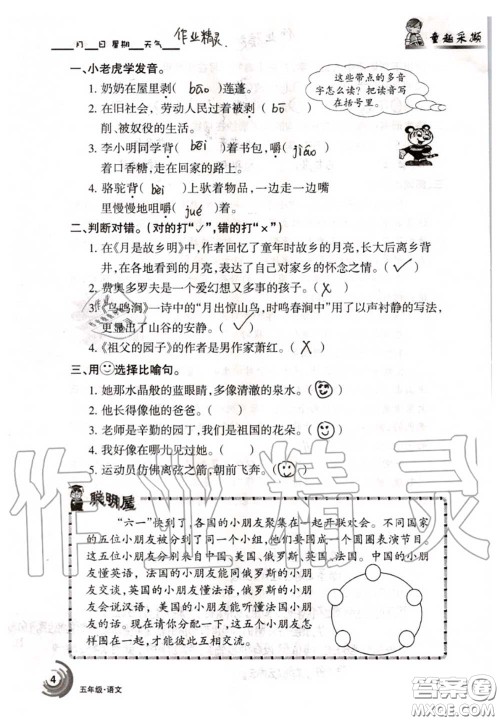 ____月____日 星期____天气____ 作业精灵
童趣采撷
一、小老虎学发音。
这些带点的多音
字怎么读?把读音写
在括号里。
1. 奶奶在屋里剥( bāo )莲蓬。
2. 在旧社会，劳动人民过着被剥( bō )
削、被奴役的生活。
3. 李小明同学背( bēi )着书包，嚼( jiáo )
着口香糖，走在回家的路上。
4. 骆驼背( bèi )上驮着物品，一边一边嘴
里慢慢地咀嚼( jué )着。
二、判断对错。(对的打“✓”，错的打“×”)
1. 在《月是故乡明》中，作者回忆了童年时故乡的月亮，长大后离乡背
井，在各地看到的月亮，表达了自己对家乡的怀念之情。( ✓ )
2. 费奥多罗夫是一个幼稚想象又多事的孩子。( × )
3. 《鸟鸣涧》一诗中的“月出惊山鸟，时鸣春涧中”用了以声衬静的写法，
更显出了山谷的安静。( ✓ )
4. 《祖父的园子》的作者是男作家萧红。( × )
三、用☺选择比喻句。
1. 她那水晶般的蓝眼睛，多像清澈的泉水。(☺)
2. 他长得像他的爸爸。( )
3. 老师是辛勤的园丁，我们是祖国的花朵。(☺)
4. 我好像在哪儿见过她。( )
5. 运动员仿佛离弦之箭，朝前飞奔。(☺)
聪明屋
“六一”快到了，各国的小朋友聚集在一起开联欢会。不同国
家的五位小朋友被分到了同一个小组，他们要围成一个圆圈表演节目。
这五位小朋友分别来自中国、美国、俄罗斯、英国、法国。中国的小朋
友懂英语，法国的小朋友能同俄罗斯的小朋
友交谈，英国的小朋友懂俄语，俄罗斯的小朋
友会说汉语，美国的小朋友能听懂法国小朋
友的话。现在请你分配一下，这五位小朋友怎
样围在一起，才能彼此互相交流。
4
五年级·语文
作业精灵
答案圈
MXQE.COM